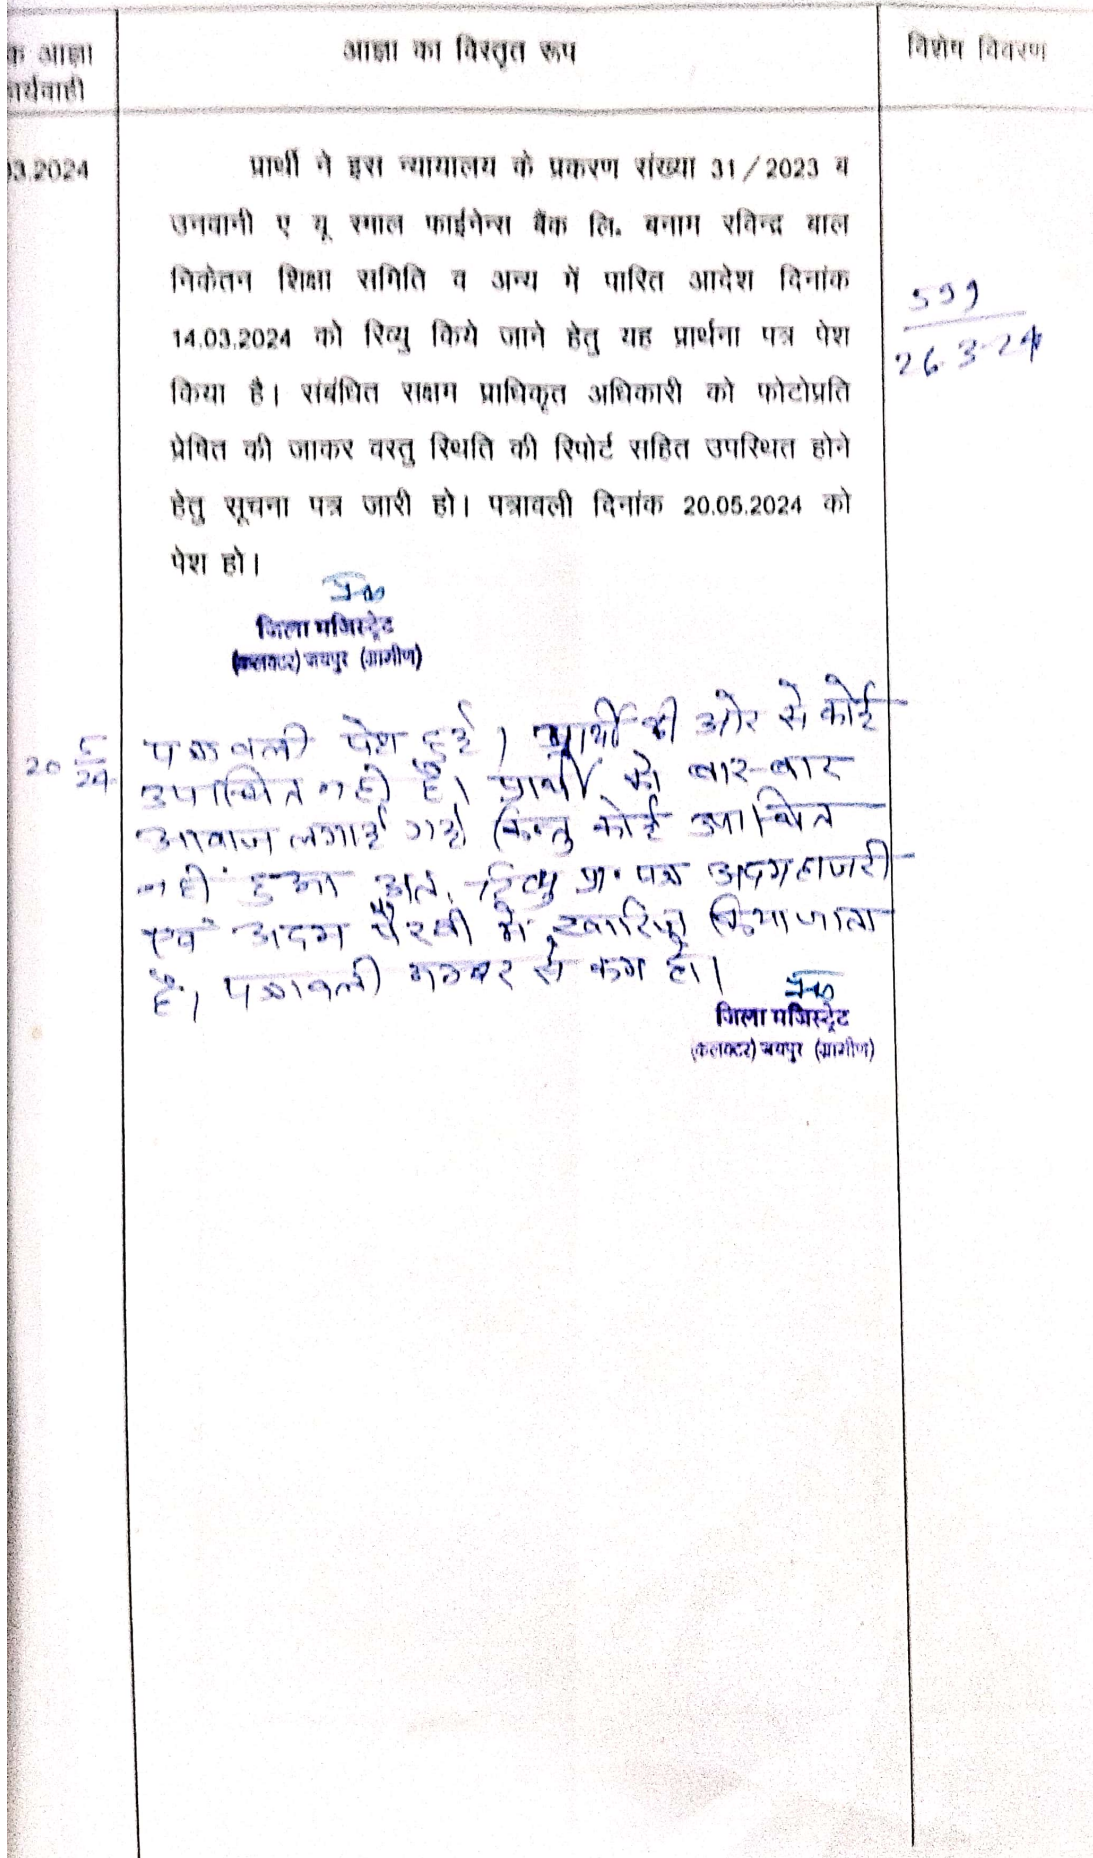 क आज्ञा
ार्यवाही
आज्ञा का विस्तृत रूप
विशेष विवरण
03.2024
प्रार्थी ने इस न्यायालय के प्रकरण संख्या 31/2023 व
उनवानी ए यू स्माल फाईनेन्स बैंक लि. बनाम रविन्द्र बाल
निकेतन शिक्षा समिति व अन्य में पारित आदेश दिनांक
14.03.2024 को रिव्यु किये जाने हेतु यह प्रार्थना पत्र पेश
किया है। संबंधित सक्षम प्राधिकृत अधिकारी को फोटोप्रति
प्रेषित की जाकर वस्तु स्थिति की रिपोर्ट सहित उपस्थित होने
हेतु सूचना पत्र जारी हो। पत्रावली दिनांक 20.05.2024 को
पेश हो।
599
26.3.24
जिला मजिस्ट्रेट
(कलक्टर) जयपुर (ग्रामीण)
20 5/24
पत्रावली पेश हुई। प्रार्थी की ओर से कोई
उपस्थित नही है। प्रार्थी को बार-बार
आवाज लगाई गई किन्तु कोई उपस्थित
नही हुआ अत. रिव्यु प्रा. पत्र अदमहाजरी
एवं अदम पैरवी में खारिज किया जाता
है। पत्रावली नम्बर से कम हो।
जिला मजिस्ट्रेट
(कलक्टर) जयपुर (ग्रामीण)